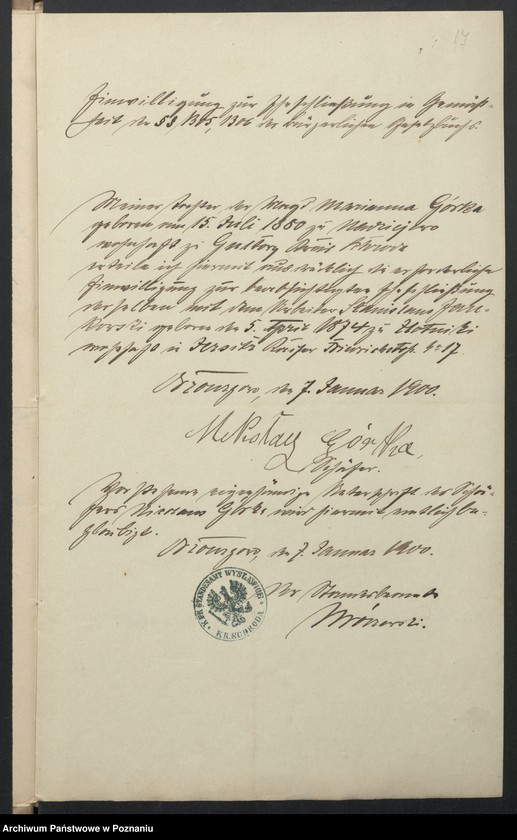 17
Einwilligung zur Eheschließung in Gemäß-
heit der §§ 1305, 1306 des Bürgerlichen Gesetzbuchs.
Meiner Tochter, der Magd Marianna Górka
geboren am 15. Juli 1880 zu
wohnhaft zu Kreis
erteile ich hiermit ausdrücklich die erforderliche
Einwilligung zur beabsichtigten Eheschließung
derselben mit dem Arbeiter Stanislaus Jan-
kowski geboren den 5. April 1874 zu Złotniki
wohnhaft in Jersitz Kaiser Friedrichstr. No 17.
den 7. Januar 1900.
Mikołay Górka,
Schäfer.
Vorstehende eigenhändige Unterschrift des Schä-
fers Nicolaus wird hiermit amtlich be-
glaubigt.
den 7. Januar 1900.
Der Standesbeamte
K.PR. STANDESAMT WYSŁAWICE
KR. SCHRODA
Archiwum Państwowe w Poznaniu